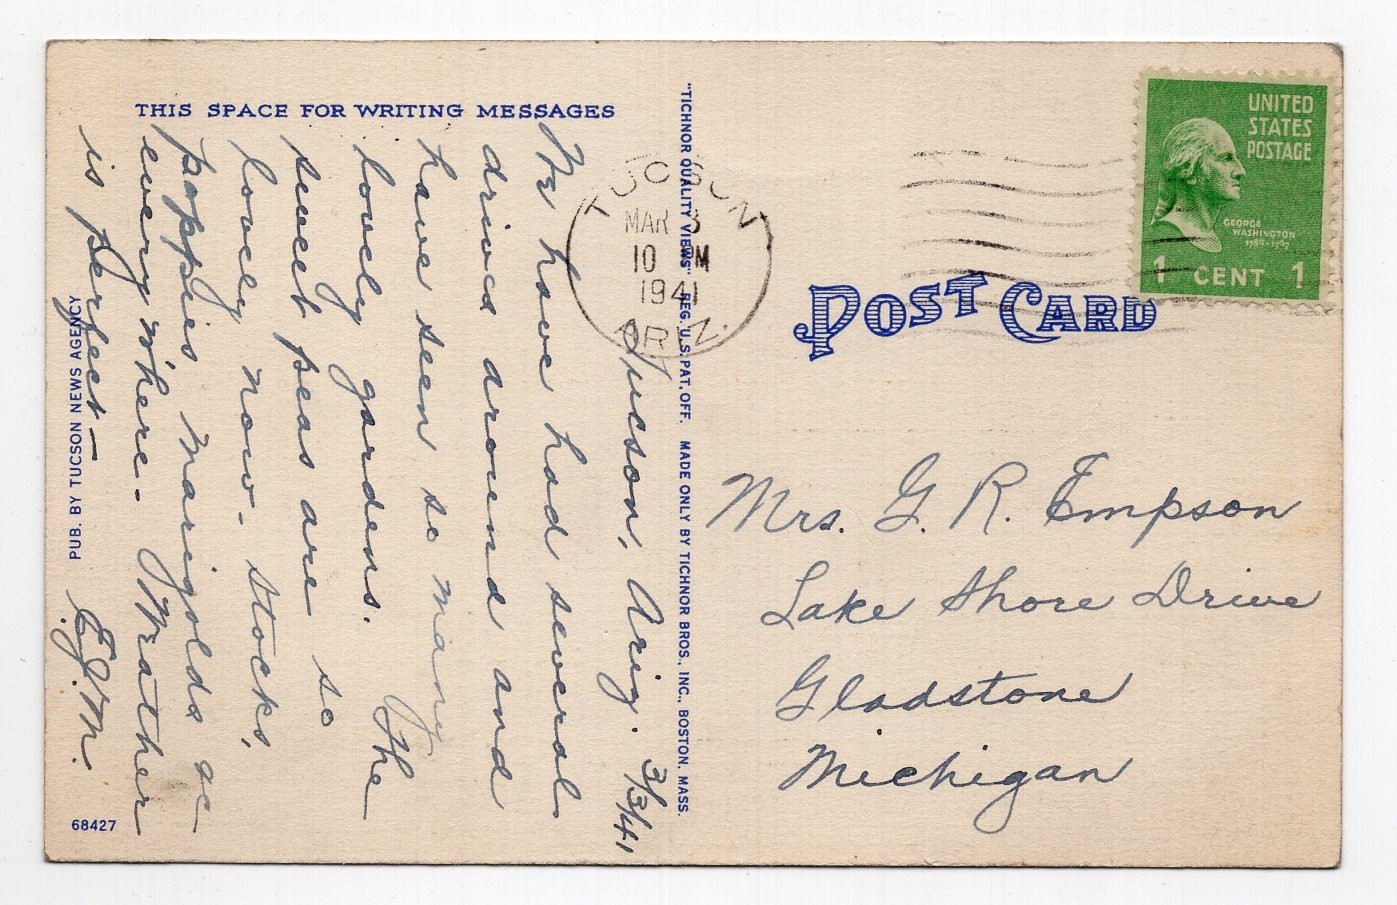 THIS SPACE FOR WRITING MESSAGES
Tucson, Ariz. 3/3/41
We have had several
drives around and
have seen so many
lovely gardens. The
sweet peas are so
lovely now - stocks,
poppies, Marigolds &c
every where - Weather
is perfect -
E.J.M.
PUB. BY TUCSON NEWS AGENCY
68427
"TICHNOR QUALITY VIEWS" REG. U.S. PAT. OFF. MADE ONLY BY TICHNOR BROS., INC., BOSTON, MASS.
TUCSON
MAR 3
10 PM
1941
ARIZ.
UNITED
STATES
POSTAGE
GEORGE
WASHINGTON
1789-1797
1 CENT 1
POST CARD
Mrs. G. R. Empson
Lake Shore Drive
Gladstone
Michigan